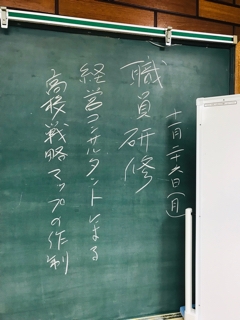 十一月二十六日(月)
職員研修
経営コンサルタントによる
高校戦略マップの作制